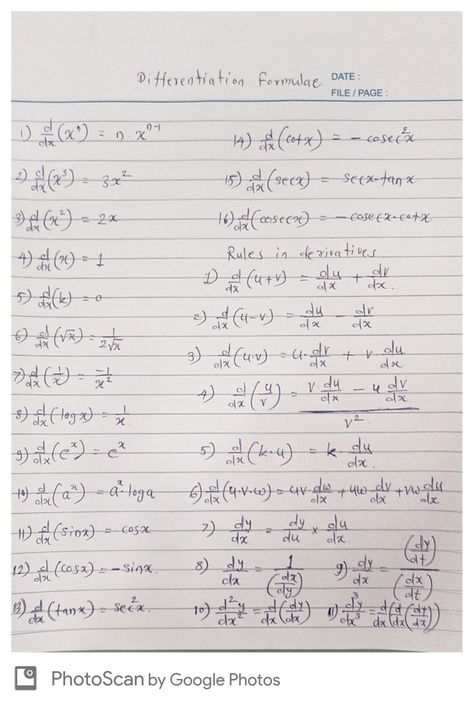 Differentiation Formulae
DATE :
FILE / PAGE :
1) d/dx (xⁿ) = n. xⁿ⁻¹
2) d/dx (x³) = 3x²
3) d/dx (x²) = 2x
4) d/dx (x) = 1
5) d/dx (k) = 0
6) d/dx (√x) = 1/2√x
7) d/dx (1/x) = -1/x²
8) d/dx (log x) = 1/x.
9) d/dx (eˣ) = eˣ
10) d/dx (aˣ) = aˣ. log a
11) d/dx (sinx) = cosx
12) d/dx (cosx) = -sinx.
13) d/dx (tanx) = sec²x.
14) d/dx (cotx) = - cosec²x
15) d/dx (secx) = secx-tanx
16) d/dx (cosecx) = - cosecx-cotx
Rules in derivatives
1) d/dx (u+v) = du/dx + dv/dx.
2) d/dx (u-v) = du/dx - dv/dx
3) d/dx (u.v) = u. dv/dx + v. du/dx
4) d/dx (u/v) = (v. du/dx - u dv/dx)/v².
5) d/dx (k.u) = k. du/dx.
6) d/dx (u.v.w) = uv dw/dx + uw dv/dx + vw du/dx
7) dy/dx = dy/du × du/dx
8) dy/dx = 1/(dx/dy)
9) dy/dx = (dy/dt)/(dx/dt)
10) d²y/dx² = d/dx (dy/dx)
11) d³y/dx³ = d/dx (d/dx (dy/dx))
PhotoScan by Google Photos